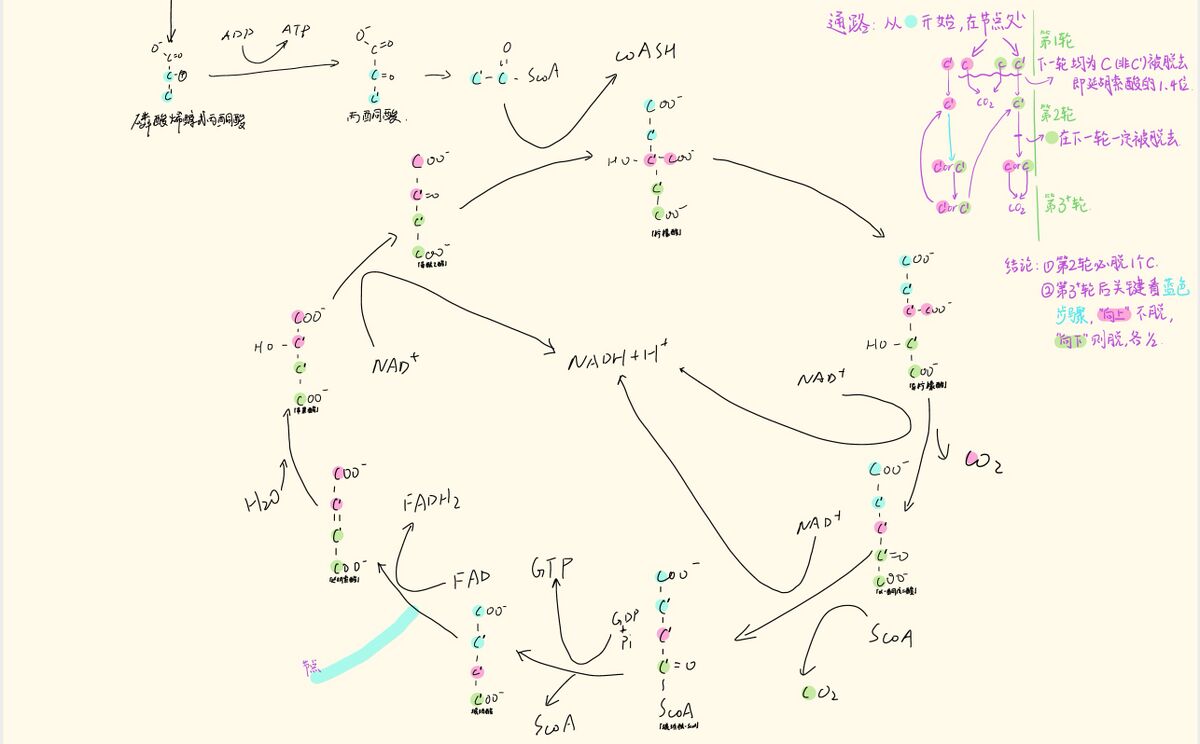 通路：从 开始，在节点处
第1轮
下一轮均为C(非C')被脱去
即延胡索酸的1.4位.
C' C C C'
CO₂
C' C'
第2轮
在下一轮一定被脱去.
C'or C' C or C
C'or C' CO₂
第3⁺轮
结论：①第2轮必脱1个C.
②第3⁺轮后关键看蓝色
步骤，"向上"不脱，
"向下"则脱，各½.
O⁻
C=O
C-Ⓟ
C'
磷酸烯醇式丙酮酸
ADP ATP
O⁻
C=O
C=O
C'
丙酮酸.
O
C'-C-SCoA
CoASH
COO⁻
C'
HO-C'-COO⁻
C'
COO⁻
「柠檬酸」
COO⁻
C'
C'-COO⁻
HO-C'
COO⁻
「异柠檬酸」
NAD⁺
CO₂
COO⁻
C'
C'
C'=O
COO⁻
「α-酮戊二酸」
NAD⁺
SCoA
CO₂
COO⁻
C'
C'
C'=O
SCoA
「琥珀酰-SCoA」
GTP
GDP
+
Pi
SCoA
COO⁻
C'
C'
C'OO⁻
琥珀酸
FAD
FADH₂
节点
COO⁻
C'
C'
COO⁻
「延胡索酸」
H₂O
COO⁻
HO-C'
C'
COO⁻
「苹果酸」
NAD⁺
NADH+H⁺
COO⁻
C'=O
C'
COO⁻
「草酰乙酸」